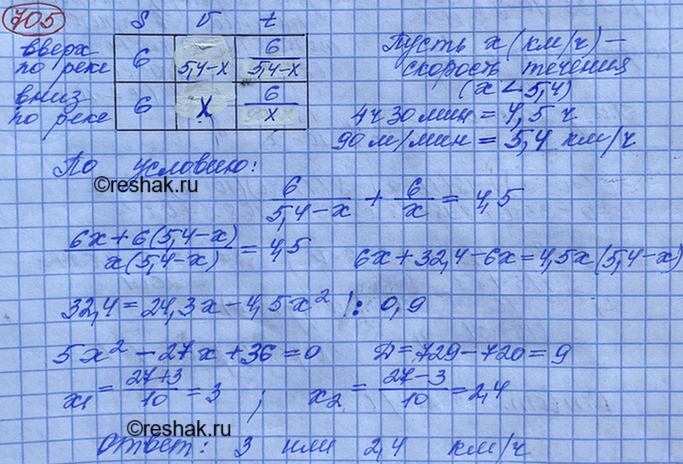 705
S V t
вверх по реке 6 5,4-x 6/(5,4-x)
вниз по реке 6 x 6/x
Пусть x (км/ч) –
скорость течения
(x < 5,4)
4ч 30 мин = 4,5 ч
90 м/мин = 5,4 км/ч
По условию:
©reshak.ru
6/(5,4-x) + 6/x = 4,5
(6x+6(5,4-x))/(x(5,4-x)) = 4,5
6x+32,4-6x=4,5x(5,4-x)
32,4=24,3x-4,5x² |: 0,9
5x²-27x+36=0 D=729-720=9
x₁ = (27+3)/10 = 3 ; x₂ = (27-3)/10 = 2,4
©reshak.ru
Ответ: 3 или 2,4 км/ч